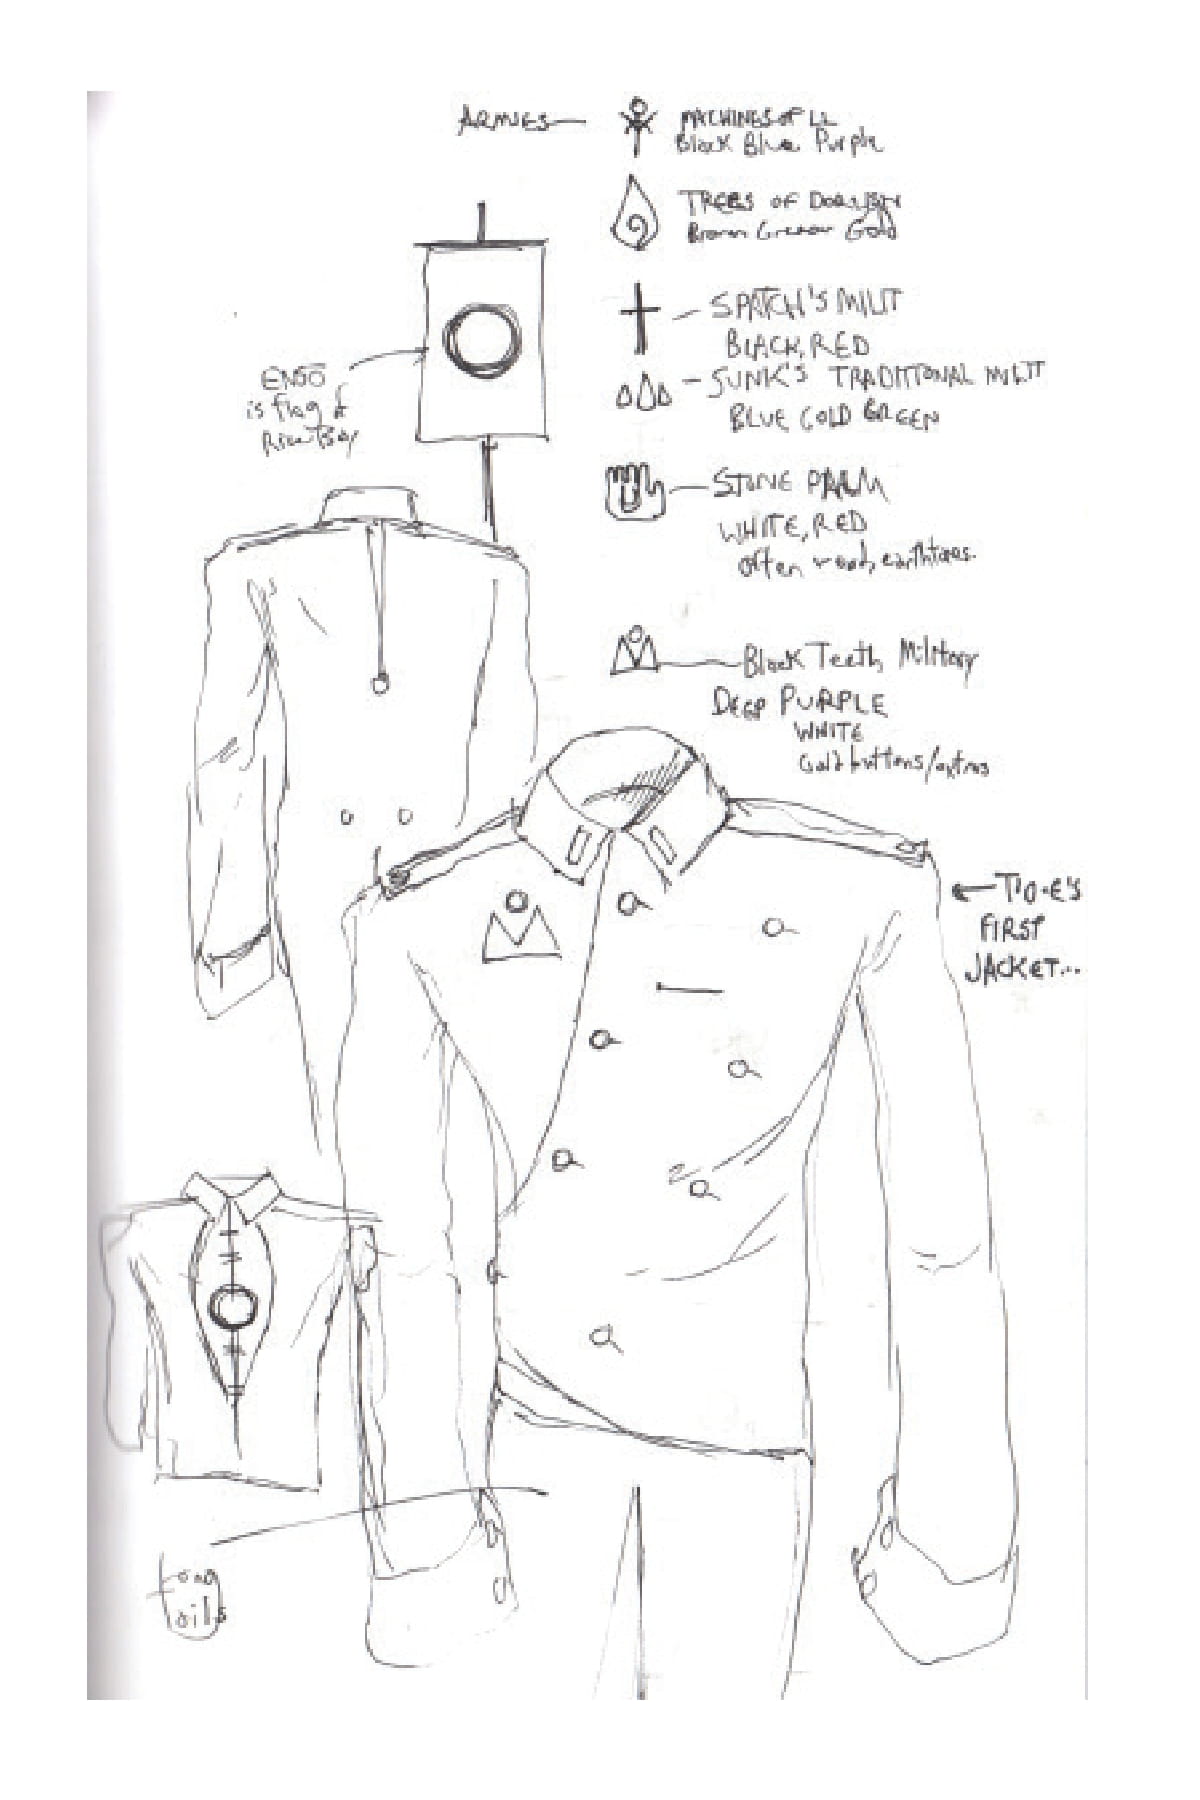 ARMIES
MACHINES OF LL
Black Blue Purple
TREES OF
Brown Green Gold
SPATCH'S MILIT
BLACK, RED
SUNK'S TRADITIONAL MILIT
BLUE GOLD GREEN
ENSO
is flag of
STONE PALM
WHITE, RED
often wood, earthtones.
Black Teeth Military
DEEP PURPLE
WHITE
Gold buttons/extras
TIO-E'S
FIRST
JACKET...